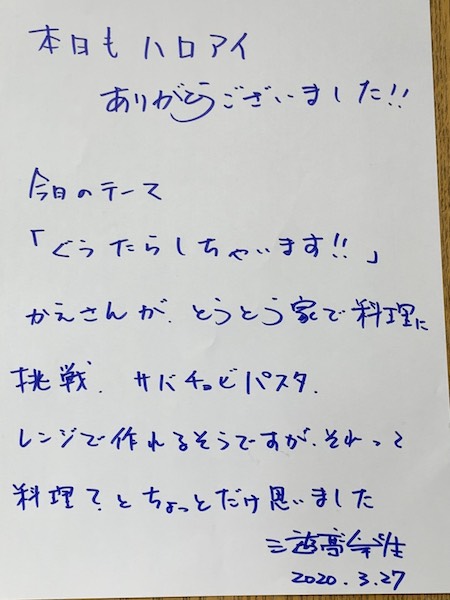 本日も ハロアイ
ありがとうございました!!
今日のテーマ
「ぐうたらしちゃいます!!」
かえさんが、とうとう家で料理に
挑戦、サバチョビパスタ、
レンジで作れるそうですが、それって
料理?とちょっとだけ思いました
2020.3.27